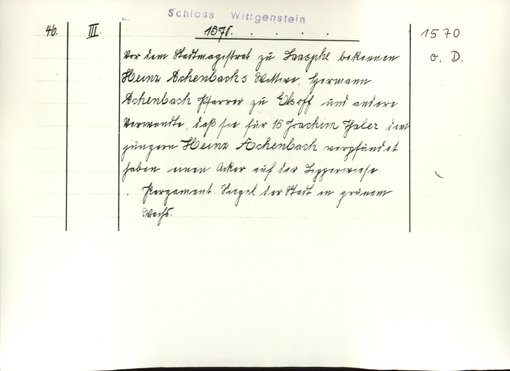 Schloss Wittgenstein
46. III. 1570. . . . . . 1570
Vor dem Stadtmagistrat zu Laasphe bekennen o. D.
Heinz Achenbachs Witwe, Hermann
Achenbach Pfarrer zu Elsoff und andere
Verwandte, daß sie für 15 Joachim Thaler dem
jüngern Heinz Achenbach verpfändet
haben einen Acker auf der Lipperwiese.
Pergament. Siegel der Stadt in grünem
Wachs.